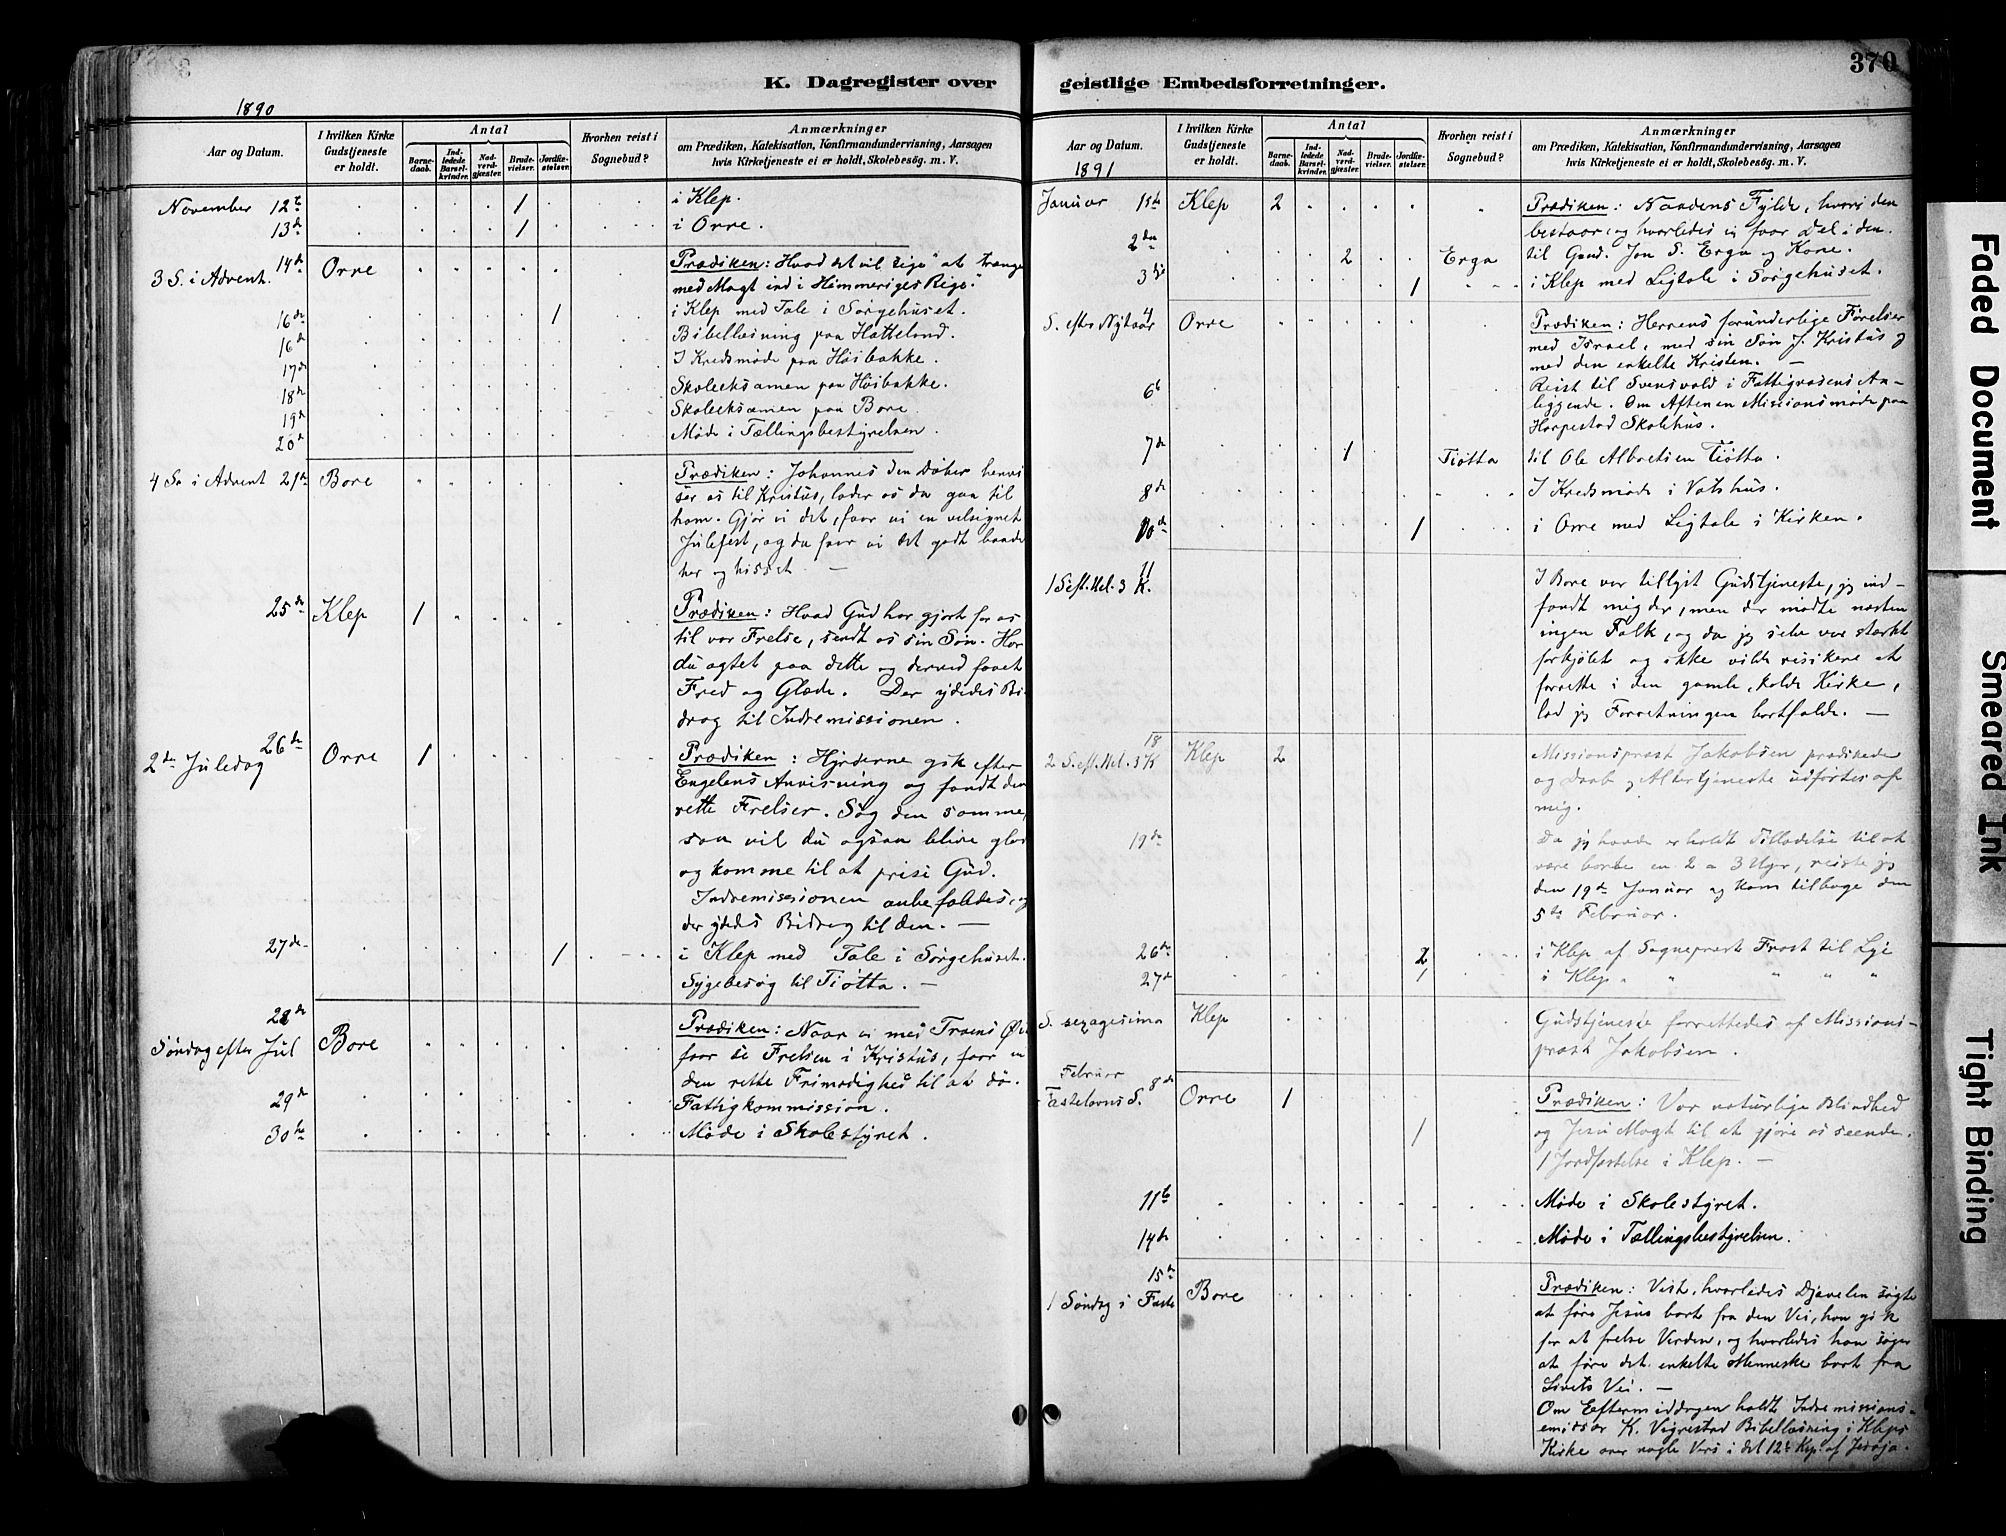 K. Dagregister over
1890
Aar og Datum.
I hvilken Kirke Gudstjeneste er holdt.
Antal
Barnedaab.
Indledede Barselkvinder.
Nadverdgjæster.
Brudevielser.
Jordfæstelser.
Hvorhen reist i Sognebud?
Anmærkninger
om Prædiken, Katekisation, Konfirmandundervisning, Aarsagen
hvis Kirketjeneste ei er holdt, Skolebesøg. m. V.
November 12te 1 i Klep.
13de 1 i Orre.
3 S. i Advent. 14de Orre Prædiken: Hvad det vil sige "at trænge
med Magt ind i Himmeriges Rige."
16de 1 i Klep med Tale i Sørgehuset.
16de Bibellæsning paa Hatteland.
17de I Kredsmøde paa Høibakke.
18de Skoleeksamen paa Høibakke.
19de Skoleeksamen paa Bore.
20de Møde i Tællingsbestyrelsen.
4 Sø i Advent 21de Bore Prædiken: Johannes den Døber henvi
ser os til Kristus, lader os da gaa til
ham. Gjør vi det, faar vi en velsignet
Julefest, og da faar vi det godt baade
her og hisset. —
25de Klep 1 Prædiken: Hvad Gud har gjort for os
til vor Frelse, sendt os sin Søn. Har
du agtet paa dette og derved faaet
Fred og Glæde. Der ydedes Bi
drag til Indremissionen.
2den Juledag 26de Orre 1 Prædiken: Hyrderne gik efter
Engelens Anvisning og fandt den
rette Frelser. Søg den samme,
saa vil du ogsaa blive glad
og komme til at prise Gud.
Indremissionen anbefaldes, og
der ydedes Bidrag til den. —
27de 1 i Klep med Tale i Sørgehuset.
Sygebesøg til Tiøtta. —
28de
Søndag efter Jul Bore Prædiken: Naar vi med Troens Øie
faar se Frelsen i Kristus, faar vi
den rette Frimodighed til at dø.
29de Fattigkommission.
30te Møde i Skolestyret.
370
geistlige Embedsforretninger.
Aar og Datum.
1891
I hvilken Kirke Gudstjeneste er holdt.
Antal
Barnedaab.
Indledede Barselkvinder.
Nadverdgjæster.
Brudevielser.
Jordfæstelser.
Hvorhen reist i Sognebud?
Anmærkninger
om Prædiken, Katekisation, Konfirmandundervisning, Aarsagen
hvis Kirketjeneste ei er holdt, Skolebesøg. m. V.
Januar 1ste Klep 2 Prædiken: Naadens Fylde, hvori den
bestaar, og hvorledes vi faar Del i den.
2den 2 Erga til Gaud. Jon S. Erga og Kone.
3die 1 i Klep med Ligtale i Sørgehuset.
S. efter Nytaar 4 Orre Prædiken: Herrens forunderlige Førelser
med Israel, med sin Søn J. Kristus og
med den enkelte Kristen. —
6te Reist til Svensvold i Fattigvæsens An-
liggende. Om Aftenen Missionsmøde paa
Horpestad Skolehus.
7de 1 Tiøtta til Ole Albretsen Tiøtta.
8de I Kredsmøde i Vatshus.
10de 1 i Orre med Ligtale i Kirken.
11
1 S. eft. Hel. 3 K. I Bore var tillyst Gudstjeneste, jeg ind-
fandt mig der, men der mødte næsten
ingen Folk, og da jeg selv var stærkt
forkjølet og ikke vilde risikere at
forrette i den gamle, kolde Kirke,
lod jeg Forretningen bortfalde. —
18
2 S. eft. Hel. 3 K Klep 2 Missionsprest Jakobsen prædikede
og Daab og Altertjeneste udførtes af
mig.
19de Da jeg havde erholdt Tilladelse til at
være borte en 2 a 3 Uger, reiste jeg
den 19de Januar og kom tilbage den
5te Februar.
26de 2 i Klep af Sogneprest Frost til Lye
27de 1 i Klep " " " "
S. sexagesima Klep Gudstjeneste forrettedes af Missions-
prest Jakobsen.
Februar
Fastelavns S. 8de Orre 1 Prædiken: Vor naturlige Blindhed
og Jesu Magt til at gjøre os seende.
1 1 Jordfæstelse i Klep. —
11te Møde i Skolestyret.
14de Møde i Tællingsbestyrelsen.
15de
1 Søndag i Faste Bore Prædiken: Vist, hvorledes Djævelen søgte
at føre Jesus bort fra den Vei, han gik
for at frelse Verden, og hvorledes han søger
at føre det enkelte Menneske bort fra
Livets Vei. —
Om Eftermiddagen holdt Indremissions-
emissær K. Vigrestad Bibellæsning i Klep
Kirke over nogle Vers i det 12te Kap. af Jesaja.
Faded Document
Smeared Ink
Tight Binding